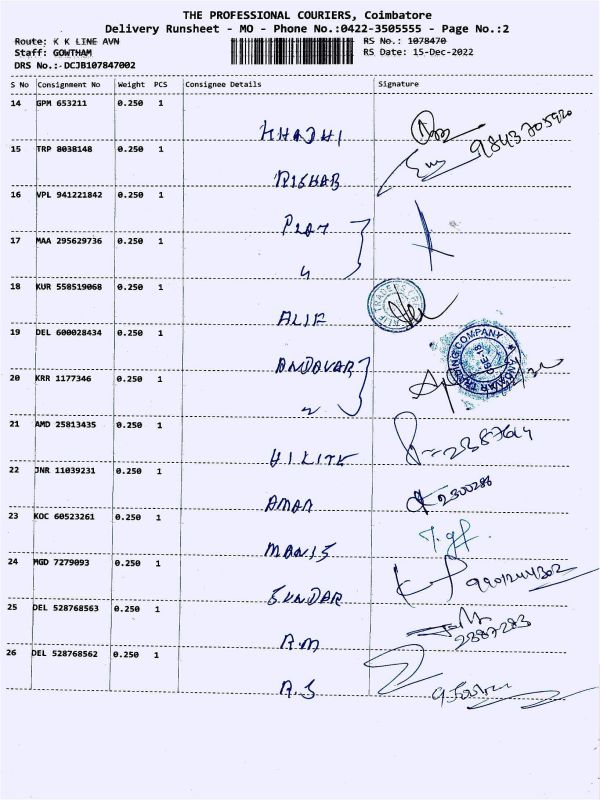 THE PROFESSIONAL COURIERS, Coimbatore
Delivery Runsheet - MO - Phone No.:0422-3505555 - Page No.:2
Route: K K LINE AVN RS No.: 1078470
Staff: GOWTHAM RS Date: 15-Dec-2022
DRS No.:-DCJB107847002
S No Consignment No Weight PCS Consignee Details Signature
14 GPM 653211 0.250 1
KHADHI 9843705920
15 TRP 8038148 0.250 1
RISHAB
16 VPL 941221842 0.250 1
17 MAA 295629736 0.250 1
18 KUR 558519068 0.250 1
ALIF
19 DEL 600028434 0.250 1
ANDAVAR
20 KRR 1177346 0.250 1
21 AMD 25813435 0.250 1
HILITE
22 JNR 11039231 0.250 1
AMAN 2300286
23 KOC 60523261 0.250 1
MANIS
24 MGD 7279093 0.250 1
SUNDAR
25 DEL 528768563 0.250 1
R.M 2387283
26 DEL 528768562 0.250 1
R.S